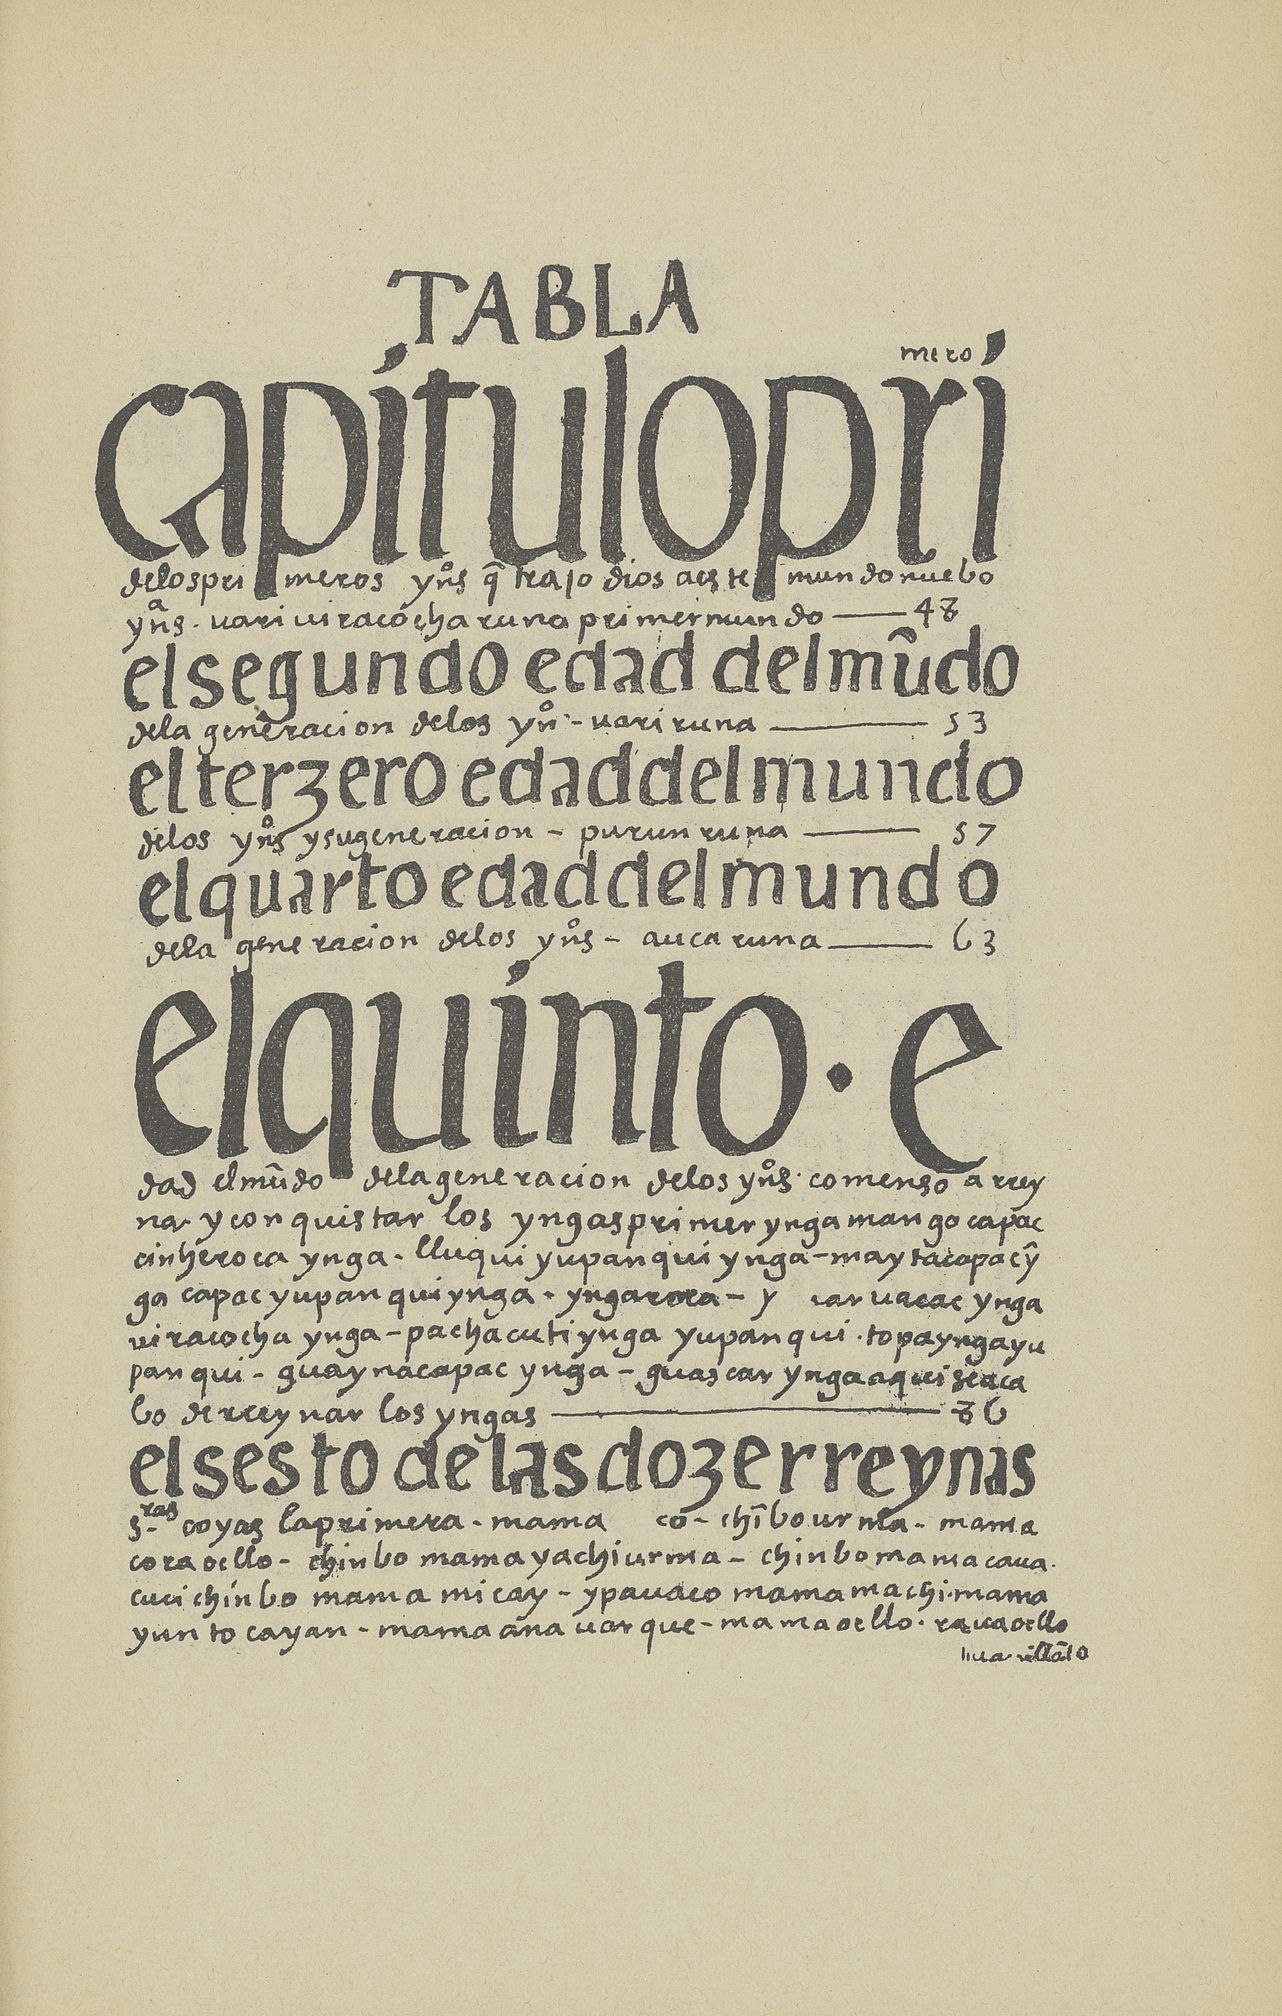 TABLA
capítulo pri
mero
delos pri meros yn̊s q̃ trajo dios aeste mundo nuebo
yn̊as. uari uiracocha runa primer mundo — 48
el segundo edad del mũdo
dela generacion delos yn̊ - uari runa — 53
el terzero edad del mundo
delos yn̊s y su generacion - purun runa — 57
el quarto edad del mundo
dela generacion delos yn̊s - auca runa — 63
el quínto. e
dad el mũdo dela generacion delos yn̊s. comenso a rrey
na y conquistar los yngas primer ynga mango capac
cinheroca ynga. lluqui yupanqui ynga - mayta capac ỹ
ga capac yupanqui ynga. ynga roca - y uar uacac ynga
uiracocha ynga - pachacuti ynga yupanqui. topa ynga yu
panqui - guaynacapac ynga - guascar ynga aqui seaca
bo derreynar los yngas — 86
el sesto de las doze rreynas
s.ras coyas la primera - mama co - chĩbo urma - mama
cora ocllo - chinbo mama yachi urma - chinbo mama caua.
cuci chinbo mama micay - ypauaco mama machi. mama
yunto cayan - mama ana uarque - mama ocllo. raua ocllo